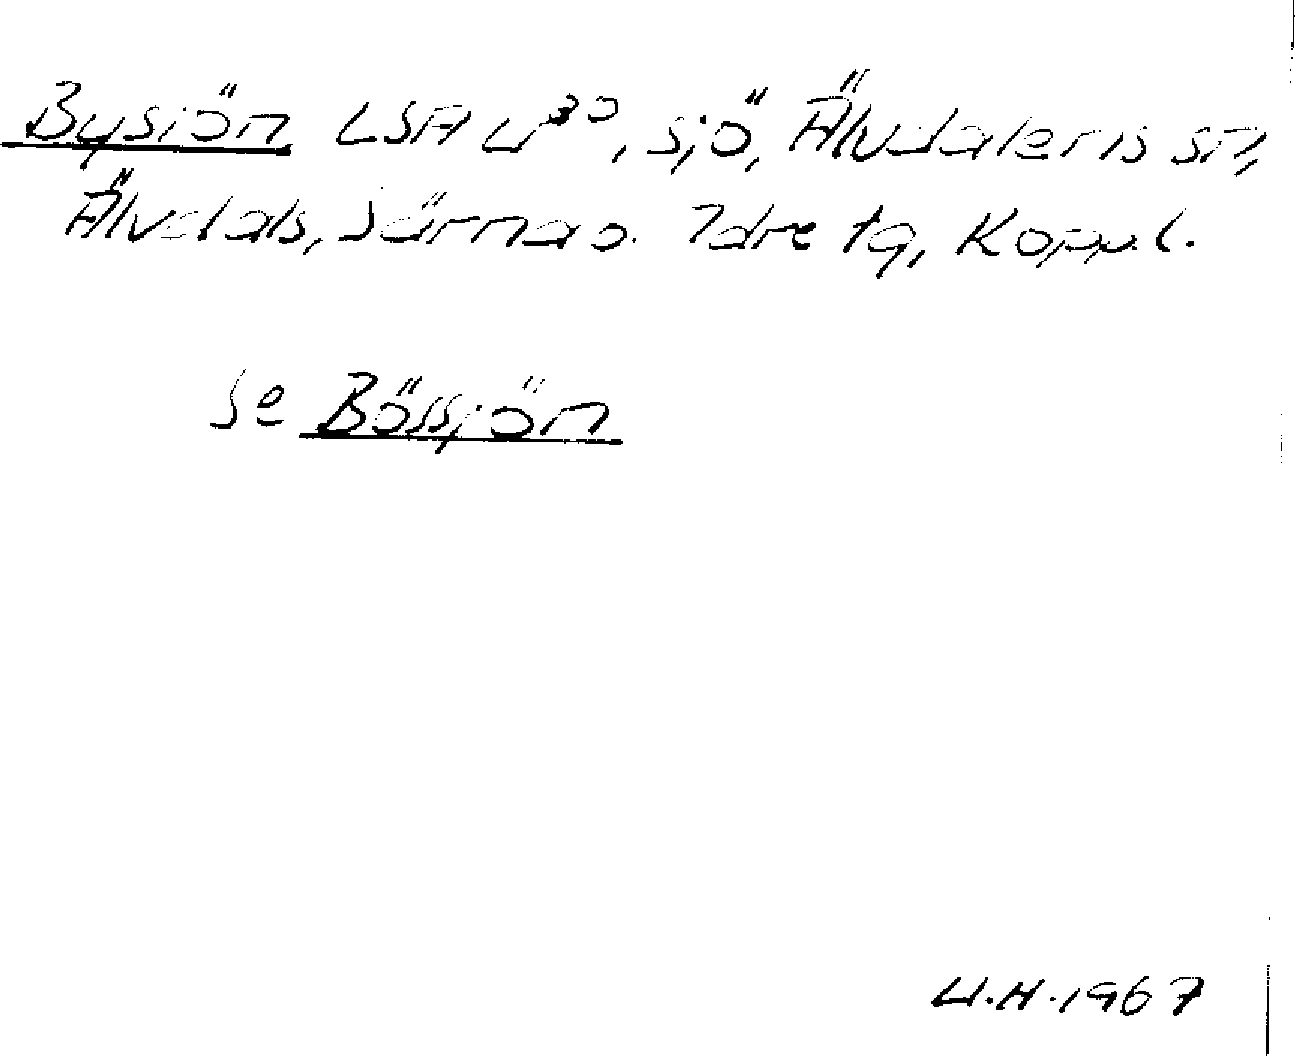 Bysjön LSA U³⁰, sjö, Älvdalens sn,
Älvdals, Särna o. Idre tg, Kopp. l.
se Bössjön
U.H. 1967